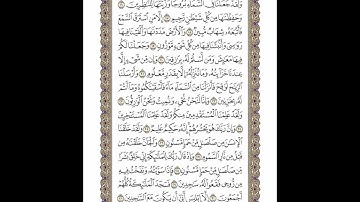 وَلَقَدْ جَعَلْنَا فِي ٱلسَّمَآءِ بُرُوجًا وَزَيَّنَّٰهَا لِلنَّٰظِرِينَ ١٦
وَحَفِظْنَٰهَا مِن كُلِّ شَيْطَٰنٍ رَّجِيمٍ ١٧ إِلَّا مَنِ ٱسْتَرَقَ ٱلسَّمْعَ
فَأَتْبَعَهُۥ شِهَابٌ مُّبِينٌ ١٨ وَٱلْأَرْضَ مَدَدْنَٰهَا وَأَلْقَيْنَا فِيهَا
رَوَٰسِيَ وَأَنۢبَتْنَا فِيهَا مِن كُلِّ شَيْءٍ مَّوْزُونٍ ١٩ وَجَعَلْنَا لَكُمْ
فِيهَا مَعَٰيِشَ وَمَن لَّسْتُمْ لَهُۥ بِرَٰزِقِينَ ٢٠ وَإِن مِّن شَيْءٍ إِلَّا
عِندَنَا خَزَآئِنُهُۥ وَمَا نُنَزِّلُهُۥٓ إِلَّا بِقَدَرٍ مَّعْلُومٍ ٢١ وَأَرْسَلْنَا
ٱلرِّيَٰحَ لَوَٰقِحَ فَأَنزَلْنَا مِنَ ٱلسَّمَآءِ مَآءً فَأَسْقَيْنَٰكُمُوهُ وَمَآ أَنتُمْ
لَهُۥ بِخَٰزِنِينَ ٢٢ وَإِنَّا لَنَحْنُ نُحْيِۦ وَنُمِيتُ وَنَحْنُ ٱلْوَٰرِثُونَ ٢٣
وَلَقَدْ عَلِمْنَا ٱلْمُسْتَقْدِمِينَ مِنكُمْ وَلَقَدْ عَلِمْنَا ٱلْمُسْتَـْٔخِرِينَ ٢٤
وَإِنَّ رَبَّكَ هُوَ يَحْشُرُهُمْ إِنَّهُۥ حَكِيمٌ عَلِيمٌ ٢٥ وَلَقَدْ خَلَقْنَا
ٱلْإِنسَٰنَ مِن صَلْصَٰلٍ مِّنْ حَمَإٍ مَّسْنُونٍ ٢٦ وَٱلْجَآنَّ خَلَقْنَٰهُ مِن
قَبْلُ مِن نَّارِ ٱلسَّمُومِ ٢٧ وَإِذْ قَالَ رَبُّكَ لِلْمَلَٰٓئِكَةِ إِنِّي خَٰلِقٌۢ بَشَرًا
مِّن صَلْصَٰلٍ مِّنْ حَمَإٍ مَّسْنُونٍ ٢٨ فَإِذَا سَوَّيْتُهُۥ وَنَفَخْتُ فِيهِ
مِن رُّوحِي فَقَعُوا۟ لَهُۥ سَٰجِدِينَ ٢٩ فَسَجَدَ ٱلْمَلَٰٓئِكَةُ كُلُّهُمْ
أَجْمَعُونَ ٣٠ إِلَّآ إِبْلِيسَ أَبَىٰٓ أَن يَكُونَ مَعَ ٱلسَّٰجِدِينَ ٣١